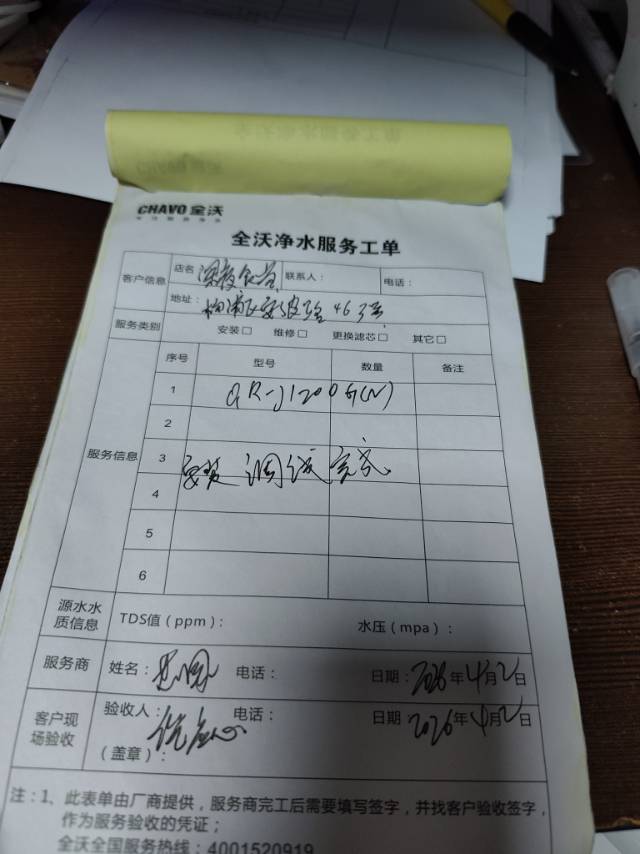 全沃净水服务工单
CHAVO 全沃
全沃净水服务工单
客户信息 店名 深夜食堂 联系人： 电话：
地址： 463号
服务类别 安装□ 维修□ 更换滤芯□ 其它□
服务信息 序号 型号 数量 备注
1 QR-J1200G(N)
2
3 安装 调试 完成
4
5
6
源水水质信息 TDS值（ppm）： 水压（mpa）：
服务商 姓名： 电话： 日期：2026年4月2日
客户现场验收 验收人： 电话： 日期 2026年4月2日
（盖章）：
注：1、此表单由厂商提供，服务商完工后需要填写签字，并找客户验收签字，
作为服务验收的凭证；
全沃全国服务热线：4001520919